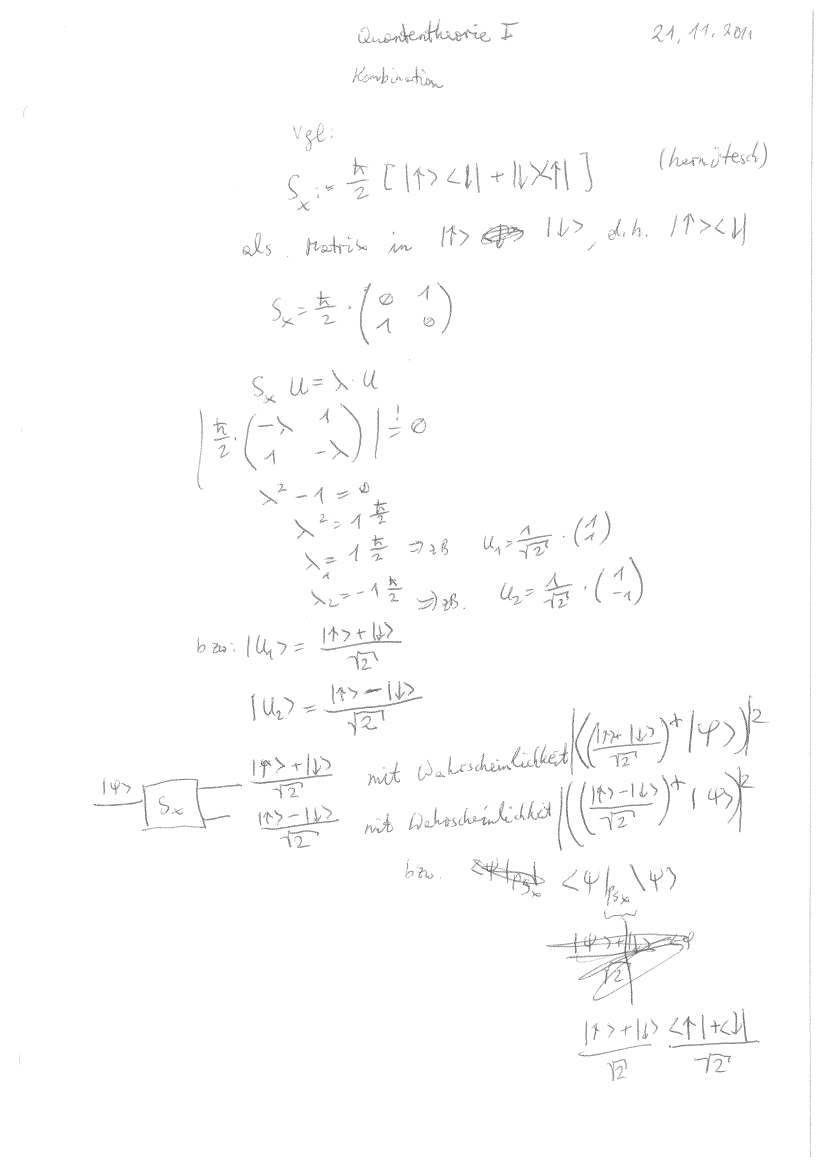 Quantentheorie I 21.11.2011
Kombination
Vgl:
S_x := ħ/2 [ |↑> <↓| + |↓><↑| ] (hermitesch)
als Matrix in |↑> |↓>, d.h. |↑><↓|
S_x = ħ/2 · ( 0 1 ; 1 0 )
S_x U = λ · U
| ħ/2 · ( -λ 1 ; 1 -λ ) | != 0
λ² - 1 = 0
λ² = 1 ħ/2
λ_1 = 1 ħ/2 => zB U_1 = 1/√2 · ( 1 ; 1 )
λ_2 = -1 ħ/2 => zB. U_2 = 1/√2 · ( 1 ; -1 )
bzw: |U_1> = (|↑> + |↓>)/√2
|U_2> = (|↑> - |↓>)/√2
|ψ> S_x (|↑> + |↓>)/√2 mit Wahrscheinlichkeit |(((|↑> + |↓>)/√2)^+ |ψ>)|²
(|↑> - |↓>)/√2 mit Wahrscheinlichkeit |(((|↑> - |↓>)/√2)^+ |ψ>)|²
bzw. <ψ|P_{S_x}|ψ>
(|↑> + |↓>)/√2 (<↑| + <↓|)/√2